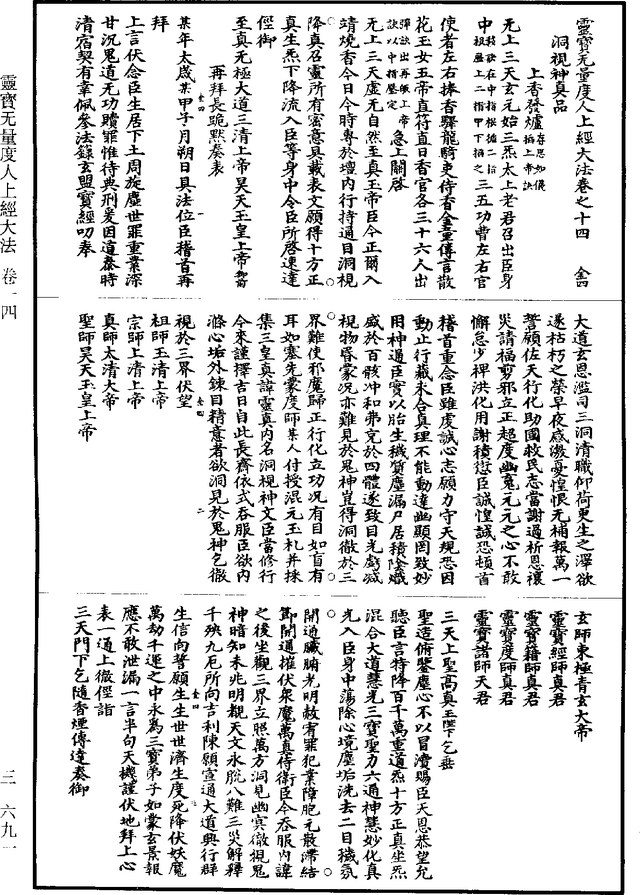 靈寶无量度人上經大法卷之十四　金四
洞視神真品
上香發爐存思如儀掐上帝訣
无上三天玄元始三炁太上老君召出臣身
中三五功曹左右官
使者左右捧香驛龍騎吏侍香金童傳言散
花玉女五帝直符直日香官各三十六人出
急上關啓
无上三天虛无自然至真玉帝臣今正爾入
靖燒香今日今時專於壇內行持通目洞視
降真召靈所有密意具載表文願得十方正
真生炁下降流入臣等身中令臣所啓速達
徑御
至真无極大道三清上帝昊天玉皇上帝御前
再拜長跪默奏表
某年太歲某甲子月朔日具法位臣稽首再
拜
上言伏念臣生居下土周旋塵世罪重業深
甘沉鬼道无功贖罪惟待典刑爰因遭泰時
清宿契有韋佩參法籙玄盟寶經叨奉
大道玄恩濫司三洞清職仰荷更生之澤欲
遂枯朽之榮早夜感激憂惶恨无補報萬一
誓願佐天行化助國救民志當謝過祈恩禳
災請福剪邪立正超度幽冤元元之心不敢
懈怠少稗洪化用謝積愆臣誠惶誠恐頓首
稽首重念臣雖虔誠心志願力守天規恐因
動止行藏未合真理不能動達幽顯罔致妙
用神通臣實以胎生穢質塵漏尸居積陰熾
盛於百骸冲和弗充於四體遂致目光虧減
視物昏蒙況亦難見於鬼神豈得洞徹於三
界難使邪魔歸正行化立功況有目如盲有
耳如塞先蒙度師某人付授混元玉札并採
集三皇真諱靈真內名洞視神文臣當修行
今來謹擇吉日自此長齋依式吞服臣欲內
滌心垢外鍊目精意者欲洞見於鬼神乞徹
視於三界伏望
祖師玉清上帝
宗師上清上帝
真師太清大帝
聖師昊天玉皇上帝
玄師東極青玄大帝
靈寶經師真君
靈寶籍師真君
靈寶度師真君
靈寶諸師天君
三天上聖高真玉陛下乞垂
聖造俯鑒塵心不以冒瀆賜臣天恩恭望允
聽臣言特降百千萬重道炁十方正真生炁
混合大道慧光三寶聖力六通神慧妙化真
光入臣身中蕩除心境塵垢洗去二目穢氛
開通臟腑光明赦宥罪犯業障胞元散滯結
節開通摧伏衆魔萬真侍衛臣今吞服內諱
之後坐觀三界立照萬方洞見幽冥徹視鬼
神暗知未兆明觀天文永脫八難三災解釋
千殃九厄所向吉利陳願宣通大道興行群
生信向誓願生生世世濟生度死降伏妖魔
萬劫千運之中永爲三寶弟子如蒙玄景報
應不敢泄漏一言半句天機謹伏地拜上心
表一通上徹徑詣
三天門下乞隨香煙傳達奏御
靈寶无量度人上經大法　卷一四
三—六九一